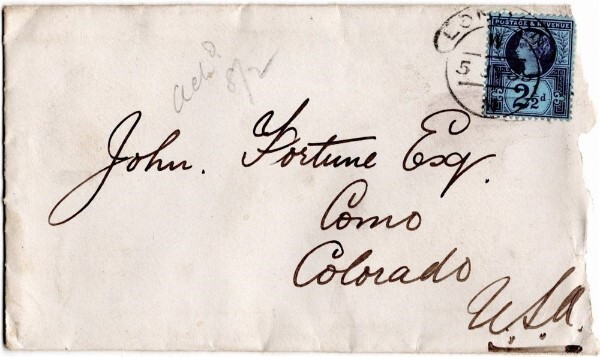 POSTAGE & REVENUE
5
2½d
8/2
John. Fortune Esq.
Como
Colorado
U.S.A.